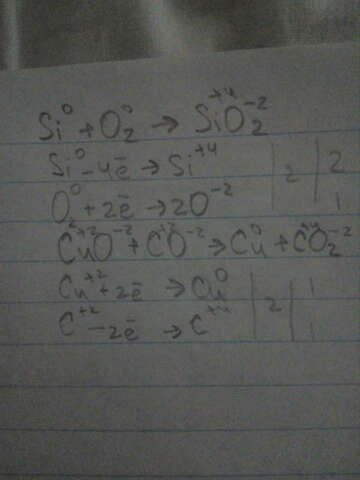 Si⁰ + O₂⁰ → Si⁺⁴O₂⁻²
Si⁰ - 4ē → Si⁺⁴ | 2 | 2
O₂⁰ + 2ē → 2O⁻² | | 1
Cu⁺²O⁻² + C⁺²O⁻² → Cu⁰ + C⁺⁴O₂⁻²
Cu⁺² + 2ē → Cu⁰ | 2 | 1
C⁺² - 2ē → C⁺⁴ | | 1